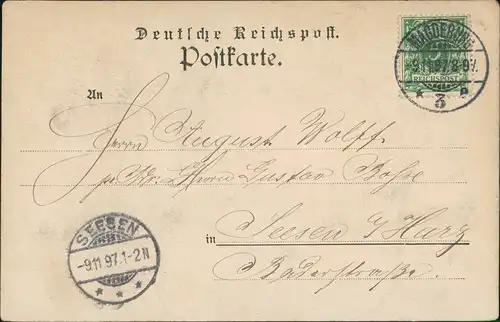 Deutsche Reichspost.
Postkarte.
MAGDEBURG
-9.11.97. 8-9V.
REICHSPOST
* 3 *
An
Herrn August Wolff
Herrn Gustav Bohse
in Seesen a/Harz
Bäderstraße.
SEESEN
-9.11.97.1-2N
* * *